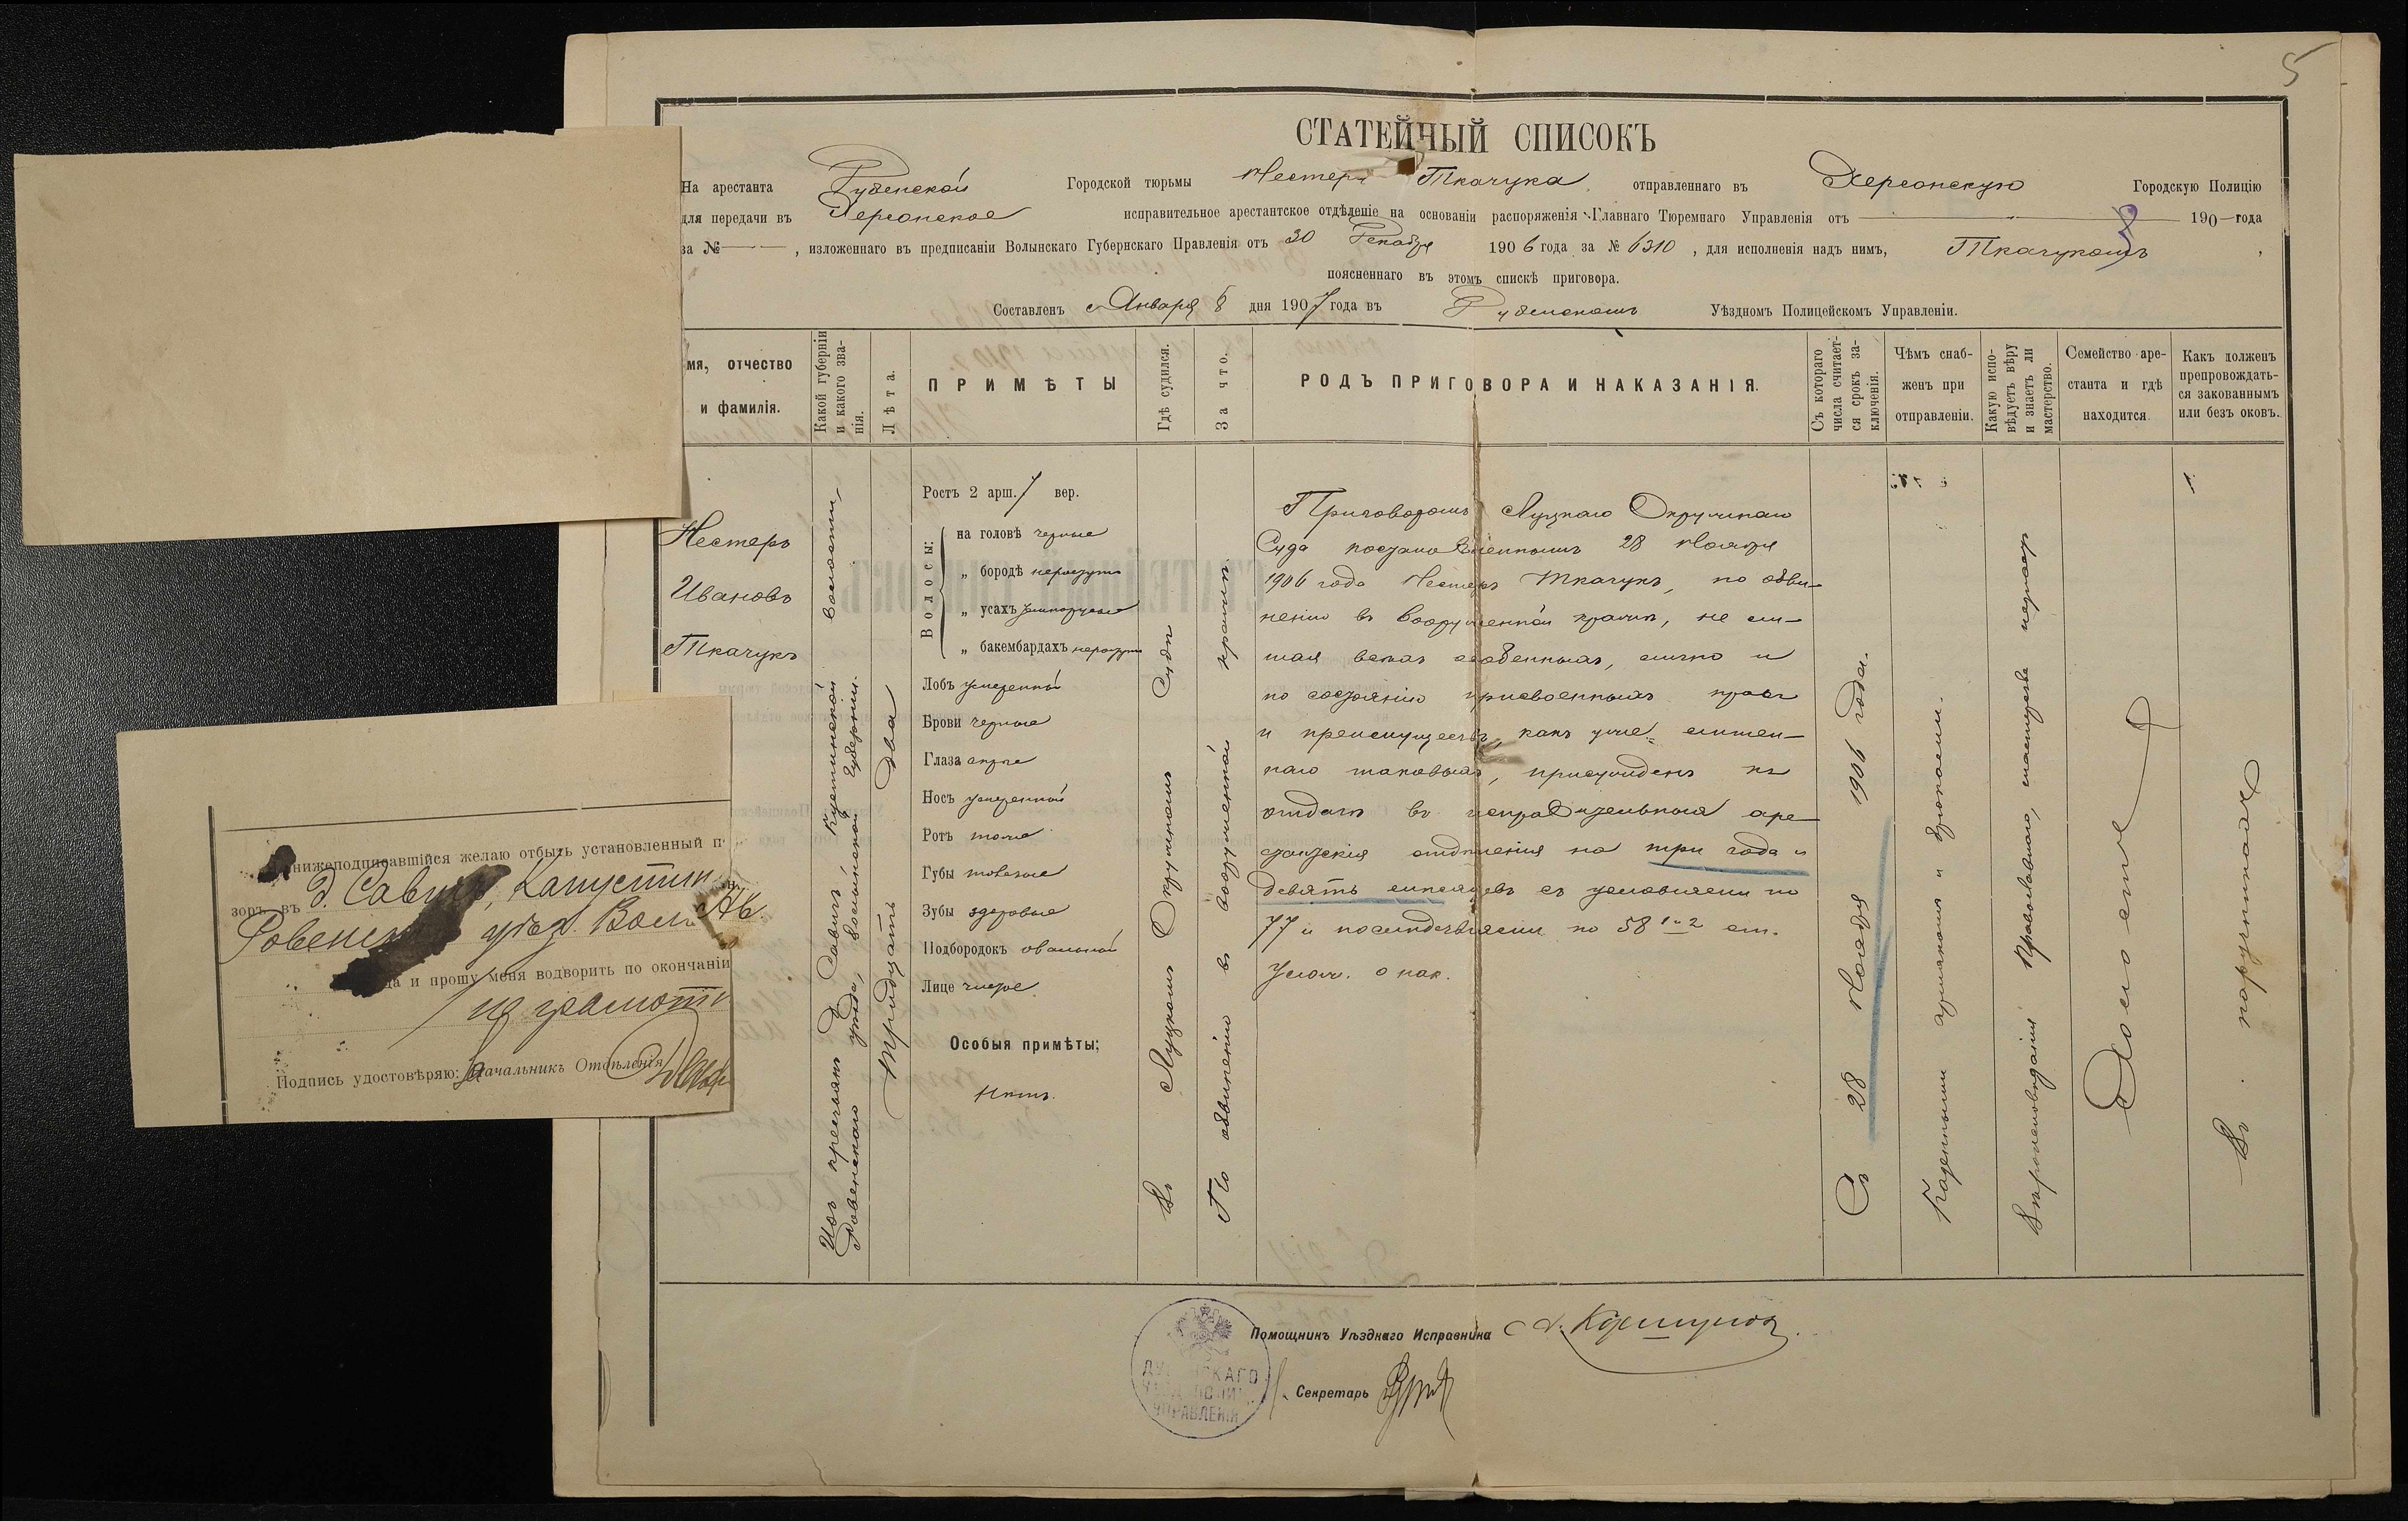 5
СТАТЕЙНЫЙ СПИСОКЪ
На арестанта Дубенской Городской тюрьмы Нестера Ткачука, отправленнаго въ Херсонскую Городскую Полицію
для передачи въ Херсонское исправительное арестантское отдѣленіе на основаніи распоряженія Главнаго Тюремнаго Управленія отъ — 190—года
за № — , изложеннаго въ предписаніи Волынскаго Губернскаго Правленія отъ 30 Декабря 1906 года за № 6310, для исполненія надъ нимъ, Ткачукомъ,
поясненнаго въ этомъ спискѣ приговора.
Составленъ Января 8 дня 1907 года въ Дубенскомъ Уѣздномъ Полицейскомъ Управленіи.
мя, отчество
и фамилія.
Какой губерніи
и какого зва-
нія.
Лѣта.
ПРИМѢТЫ
Гдѣ судился.
За что.
РОДЪ ПРИГОВОРА И НАКАЗАНІЯ.
Съ котораго
числа считает-
ся срокъ за-
ключенія.
Чѣмъ снаб-
женъ при
отправленіи.
Какую испо-
вѣдуетъ вѣру
и знаетъ ли
мастерство.
Семейство аре-
станта и гдѣ
находится.
Какъ долженъ
препровождать-
ся закованнымъ
или безъ оковъ.
Нестеръ
Ивановъ
Ткачукъ
Изъ крестьянъ д. Савичъ, Кустинской волости,
Ровенскаго уѣзда, Волынской губерніи.
Тридцать два
Ростъ 2 арш. 7 вер.
Волосы:
на головѣ черные
„ бородѣ нероступъ
„ усахъ темнорусые
„ бакембардахъ нероступъ
Лобъ умеренный
Брови черные
Глаза карие
Носъ умеренный
Ротъ тоже
Губы толстые
Зубы здоровые
Подбородокъ овальный
Лице чистое
Особыя примѣты:
Нѣтъ.
Въ Луцкомъ Окружномъ Судѣ
По обвиненію въ вооруженной кражѣ.
Приговоромъ Луцкаго Окружнаго
Суда постановленнымъ 28 Ноября
1906 года Нестеръ Ткачукъ, по обви-
ненію въ вооруженной кражѣ, не ли-
шая всѣхъ особенныхъ, лично и
по состоянію присвоенныхъ правъ
и преимуществъ, какъ уже лишен-
наго таковыхъ, присужденъ къ
отдачѣ въ исправительныя аре-
стантскія отдѣленія на три года и
девять мѣсяцевъ съ условіями по
77 и послѣдствіями по 58 1 и 2 ст.
Улож. о нак.
Съ 28 Ноября 1906 года.
Казенными армякомъ и брюками.
Вѣроисповѣданія Православнаго, мастерства
Холостъ
Въ наручникахъ
нижеподписавшійся желаю отбыть установленный п
зоръ въ д. Савичъ, Капустин
Ровенск уѣзд. Волын
да и прошу меня водворить по окончаніи
не грамотн
Подпись удостовѣряю: За Начальникъ Отдѣленія
Помощникъ Уѣзднаго Исправника
Секретарь
УПРАВЛЕНІЯ